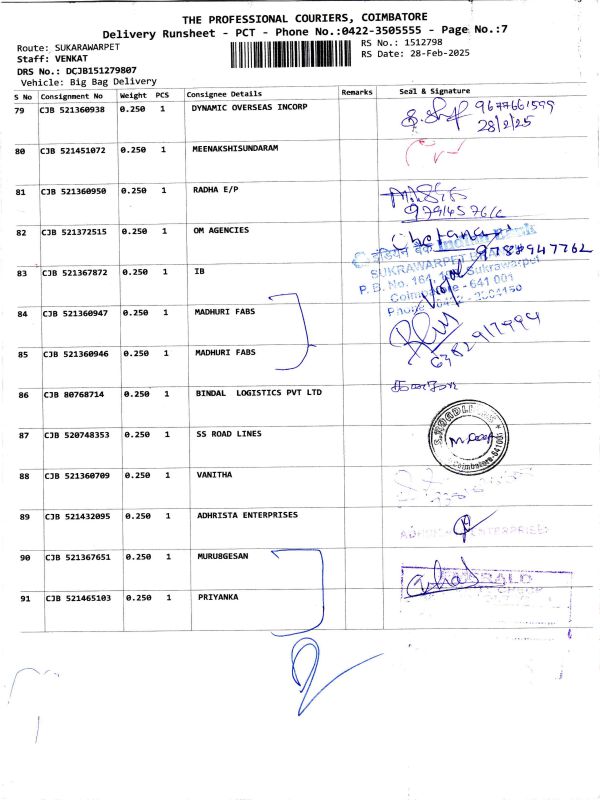 THE PROFESSIONAL COURIERS, COIMBATORE
Delivery Runsheet - PCT - Phone No.:0422-3505555 - Page No.:7
Route: SUKARAWARPET
RS No.: 1512798
Staff: VENKAT
RS Date: 28-Feb-2025
DRS No.: DCJB151279807
Vehicle: Big Bag Delivery
S No Consignment No Weight PCS Consignee Details Remarks Seal & Signature
79 CJB 521360938 0.250 1 DYNAMIC OVERSEAS INCORP 9677661599
28/2/25
80 CJB 521451072 0.250 1 MEENAKSHISUNDARAM
81 CJB 521360950 0.250 1 RADHA E/P
82 CJB 521372515 0.250 1 OM AGENCIES
इंडियन बैंक Indian Bank
83 CJB 521367872 0.250 1 IB
SUKRAWARPET
P. B. No. 164, Sukrawarpet
Coimbatore - 641 001
84 CJB 521360947 0.250 1 MADHURI FABS
85 CJB 521360946 0.250 1 MADHURI FABS
86 CJB 80768714 0.250 1 BINDAL LOGISTICS PVT LTD
87 CJB 520748353 0.250 1 SS ROAD LINES
Coimbatore-641001
88 CJB 521360709 0.250 1 VANITHA
89 CJB 521432095 0.250 1 ADHRISTA ENTERPRISES
ENTERPRISES
90 CJB 521367651 0.250 1 MURU8GESAN
91 CJB 521465103 0.250 1 PRIYANKA
2